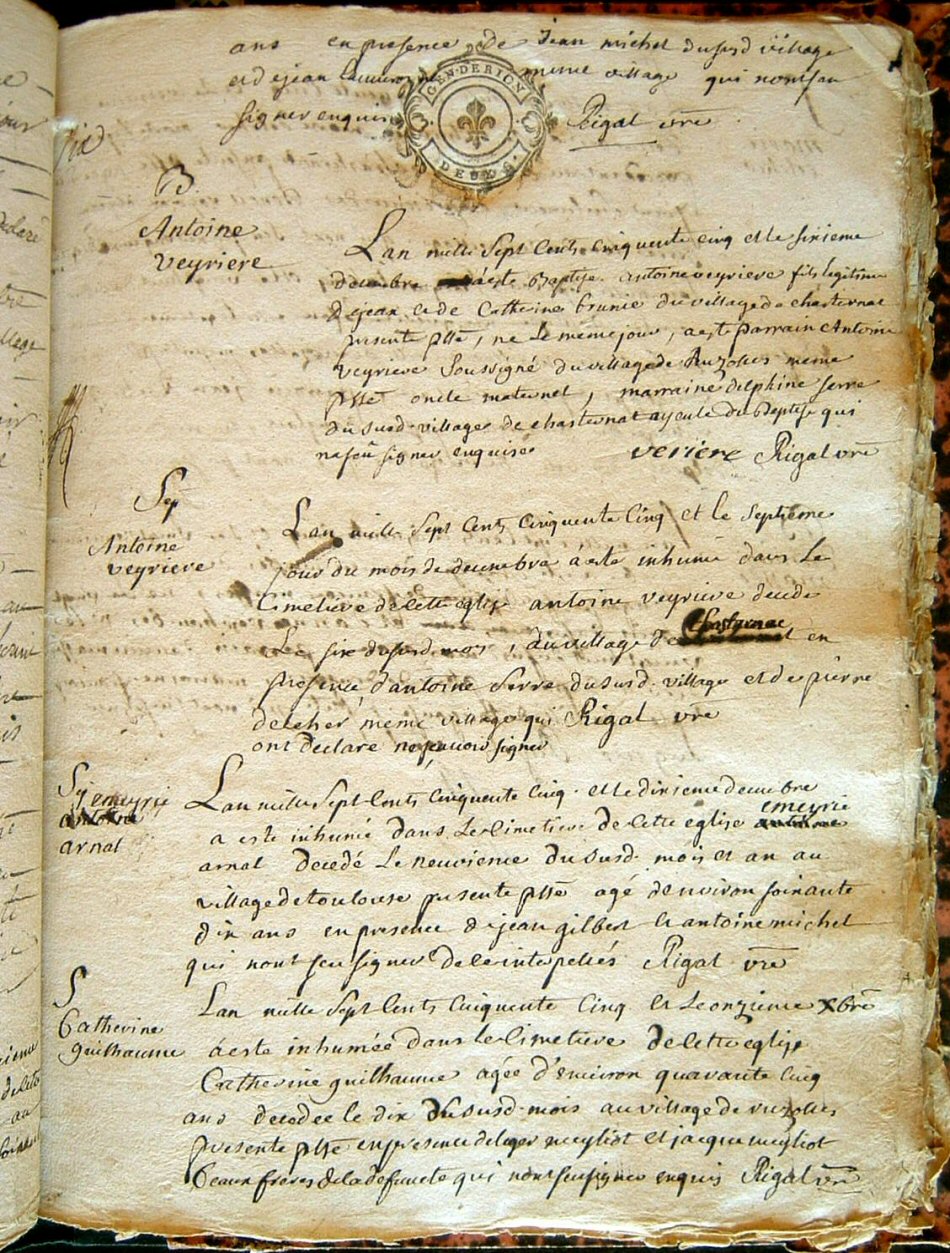 ans en presence de Jean michel dususd village
et de jean meme village qui nont seu
signer enquis Rigal vre
GEN. DE RION
DEUX S.
B
Antoine
veyriere
Lan mille Sept Cents Cinquente Cinq et le sixieme
decembre a este Baptise antoine veyriere fils legitime
de jean et de Catherine brunie du village de chasternat
presente psse, ne le meme jour, a este parrain Antoine
veyriere Soussigné du village de Ruzolles meme
psse oncle maternel, marraine delphine serre
du susd. village de chasternat ayeule du Baptise qui
na seu signer enquise veriere Rigal vre
Sep
Antoine
veyriere
Lan mille Sept Cents Cinquente Cinq et le Septieme
jour du mois de decembre a este inhumé dans Le
Cimetiere de cette eglise antoine veyriere decede
Le six dususd. mois, du village de Chasternac en
presence d'antoine Serre du susd. village et de pierre
delcher meme village qui Rigal vre
ont declaré ne scavoir signer
S emeyrie
antoine
arnal
Lan mille Sept Cents Cinquente Cinq et le dixieme decembre
a este inhumé dans Le Cimetiere de Cette eglise emeyrie
arnal decedé Le neuvieme du susd. mois et an au
village de toulouse presente psse agé denviron soixante
dix ans en presence de jean gilbert et antoine michel
qui nont seu signer de ce interpellés Rigal vre
S
Catherine
guilhaume
Lan mille Sept Cents Cinquente Cinq et Le onzieme Xbre
a este inhumée dans le Cimetiere de Cette eglise
Catherine guilhaume agée d'environ quarante Cinq
ans decedee le dix du susd. mois au village de ruzolles
presente psse en presence de leger meyniot et jacque meyniot
Beaux freres de la defuncte qui nont seu signer enquis Rigal vre